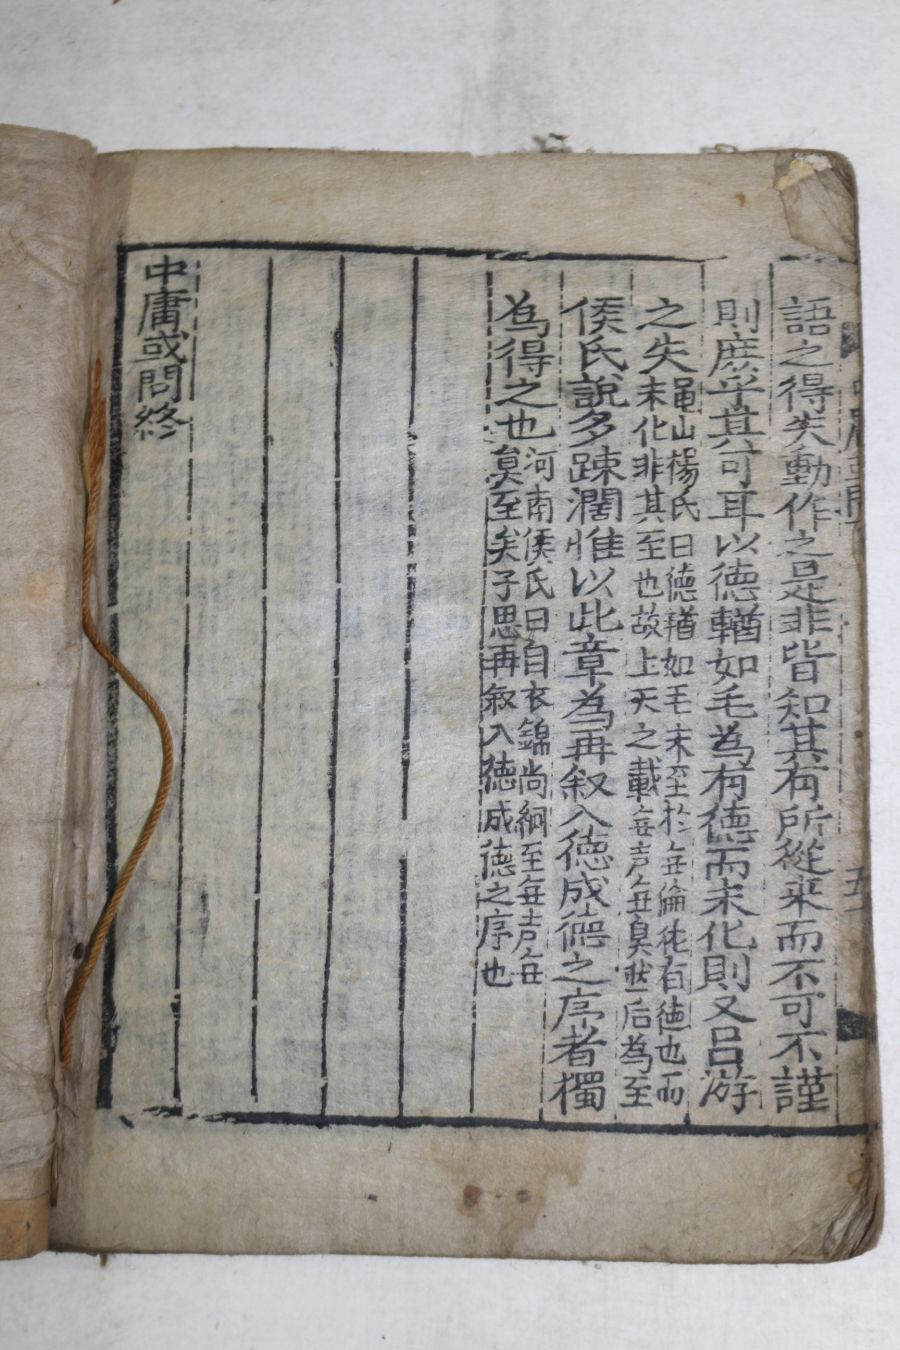 語之得失動作之是非皆知其有所從来而不可不謹
則庶乎其可耳以德輶如毛為有德而未化則又呂游
之失
龜山楊氏曰德輶如毛未至於無倫徒有德也而
未化非其至也故上天之載無声無臭然后為至
侯氏說多踈濶惟以此章為再叙入德成德之序者獨
為得之也
河南侯氏曰自衣錦尚絅至無声無
臭至矣子思再叙入德成德之序也
中庸或問終